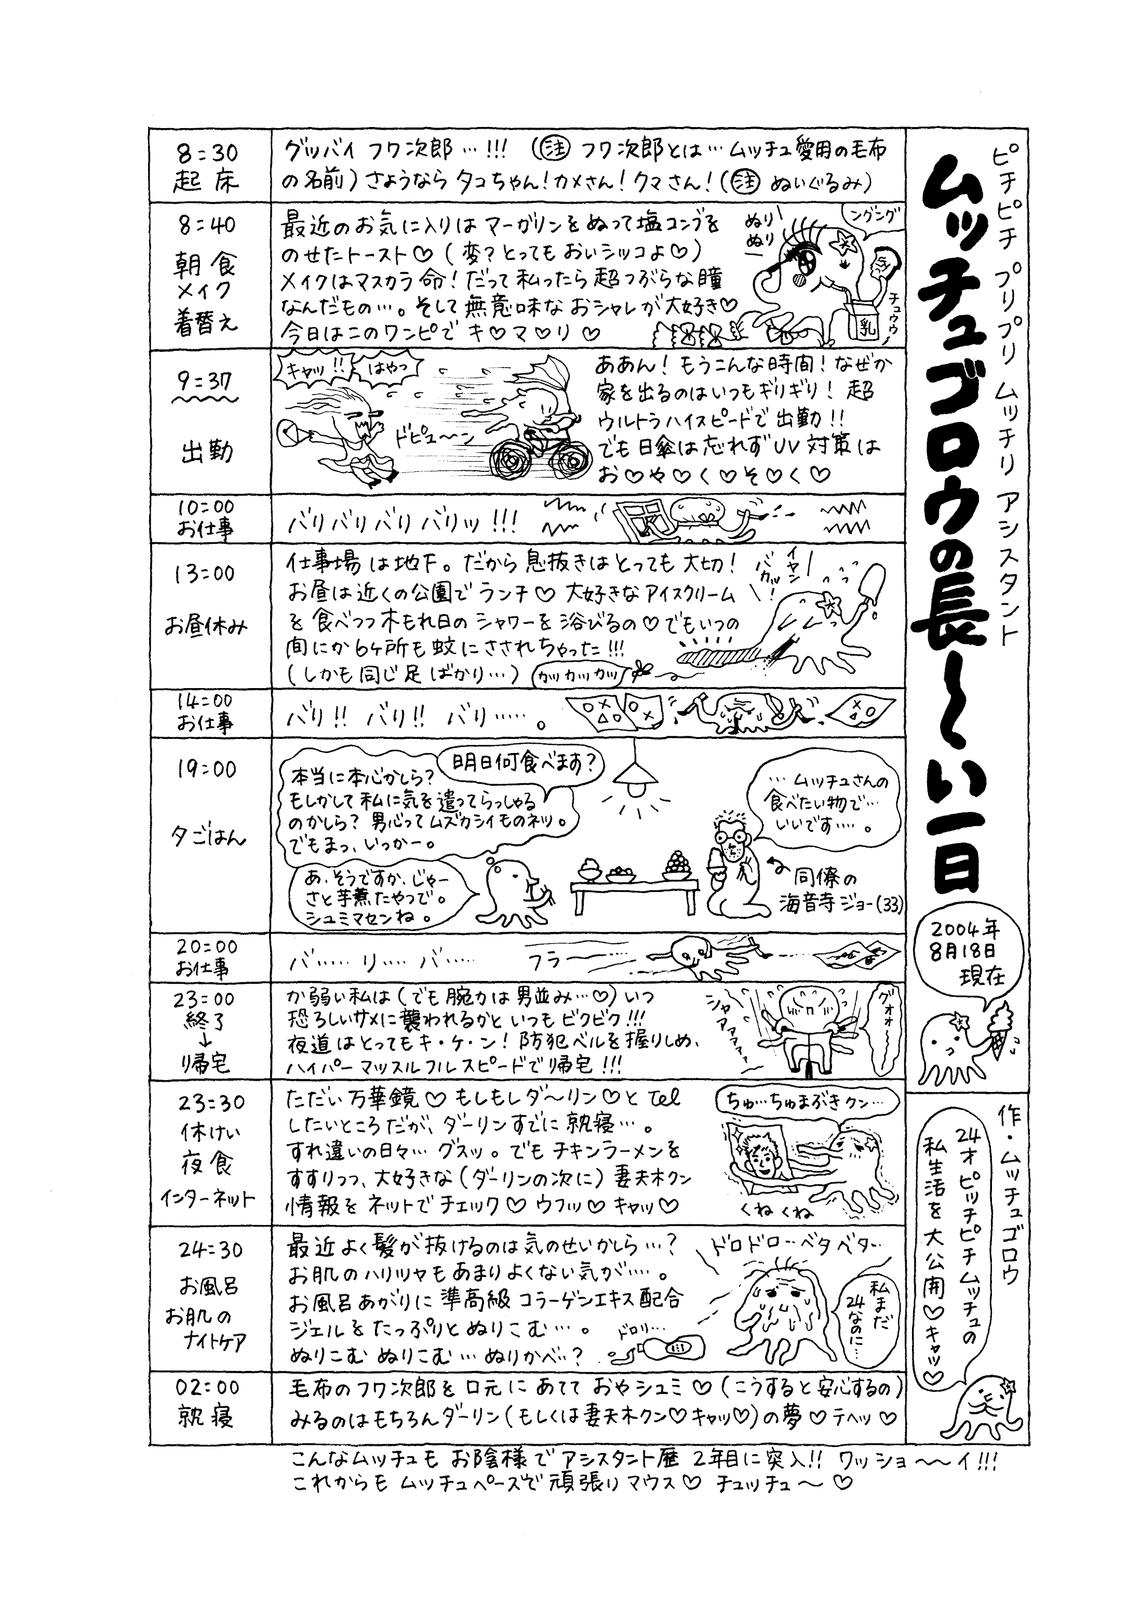 ピチピチ プリプリ ムッチリ アシスタント
ムッチュゴロウの長〜い一日
2004年
8月18日
現在
作・ムッチュゴロウ
24才 ピッチピチムッチュの
私生活を大公開♡キャッ♡
8:30
起床
グッバイ フワ次郎…!!! (注 フワ次郎とは…ムッチュ愛用の毛布
の名前) さようなら タコちゃん!カメさん!クマさん!(注 ぬいぐるみ)
8:40
朝食
メイク
着替え
最近のお気に入りは マーガリンをぬって塩コンブを
のせたトースト♡ (変?とってもおいシッコよ♡)
メイクはマスカラ命!だって私ったら超つぶらな瞳
なんだもの…。そして無意味なおシャレが大好き♡
今日はこのワンピでキ♡マ♡リ♡
ぬり
ぬり
ングング
チュウウ
乳
9:37
出勤
キャッ!!
はやっ
ドピュ〜ン
ああん!もうこんな時間!なぜか
家を出るのはいつもギリギリ!超
ウルトラハイスピードで出勤!!
でも日傘は忘れずUV対策は
お♡や♡く♡そ♡く♡
10:00
お仕事
バリバリバリバリッ!!!
13:00
お昼休み
仕事場は地下。だから息抜きはとっても大切!
お昼は近くの公園でランチ♡ 大好きなアイスクリーム
を食べつつ木もれ日のシャワーを浴びるの♡でもいつの
間にか6ヶ所も蚊にさされちゃった!!!
(しかも同じ足ばかり…)
カッカッカッ
イヤン
バカッ
14:00
お仕事
バリ!! バリ!! バリ……。
19:00
夕ごはん
明日何食べます?
本当に本心かしら?
もしかして私に気を遣ってらっしゃる
のかしら?男心ってムズカシイものネッ。
でもまっ、いっかー。
あ、そうですか、じゃー
さと芋煮たやつで。
シュミマセンね。
…ムッチュさんの
食べたい物で…
いいです…。
同僚の
海音寺ジョー(33)
20:00
お仕事
バ…… リ…… バ……
フラー
23:00
終了
↓
帰宅
か弱い私は(でも腕力は男並み…♡)いつ
恐ろしいサメに襲われるかといつもビクビク!!!
夜道はとってもキ・ケ・ン!防犯ベルを握りしめ、
ハイパーマッスルフルスピードで帰宅!!!
シャアアアァ
グオォー
23:30
休けい
夜食
インターネット
ただい万華鏡♡もしもしダ〜リン♡とTel
したいところだが、ダーリンすでに就寝…。
すれ違いの日々…グスッ。でもチキンラーメンを
すすりつつ、大好きな(ダーリンの次に)妻夫木クン
情報をネットでチェック♡ウフッ♡キャッ♡
ちゅ…ちゅまぶきクン…
くねくね
24:30
お風呂
お肌の
ナイトケア
最近よく髪が抜けるのは気のせいかしら…?
お肌のハリツヤもあまりよくない気が…。
お風呂あがりに準高級コラーゲンエキス配合
ジェルをたっぷりとぬりこむ…。
ぬりこむぬりこむ…ぬりかべ…?
ドロドロ…ベタベタ…
ドロリ…
私まだ
24なのに…
02:00
就寝
毛布のフワ次郎を口元にあてておやシュミ♡(こうすると安心するの)
みるのはもちろんダーリン(もしくは妻夫木クン♡キャッ♡)の夢♡テヘッ♡
こんなムッチュもお陰様でアシスタント歴2年目に突入!! ワッショ〜〜イ!!!
これからもムッチュペースで頑張りマウス♡ チュッチュ〜♡